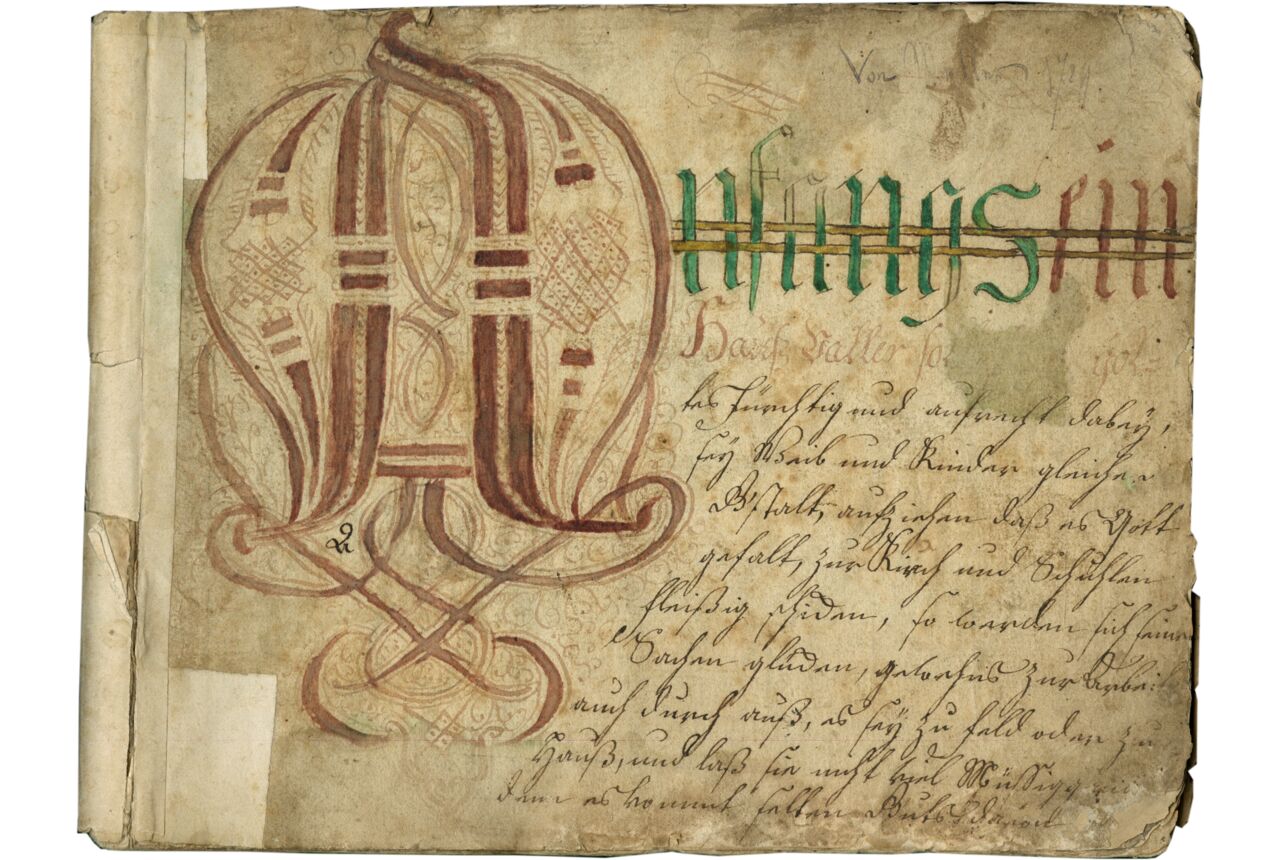 Von 1721
Anfangs ein
Hauß Vatter so got=
tes fürchtig und aufrecht dabey,
sey Weib und Kinder gleicher
G'stalt, aufziehen daß es Gott
gefalt, zur Kirch und Schuhlen
A
fleißig schiden, so werden sich seine
Sachen glüden, gewehns zur Arbeit
auch durch auß, es sey zu feld oder zu
Hauß, und laß sie nicht viel Müssigg
denn es kommt selten Guts davon